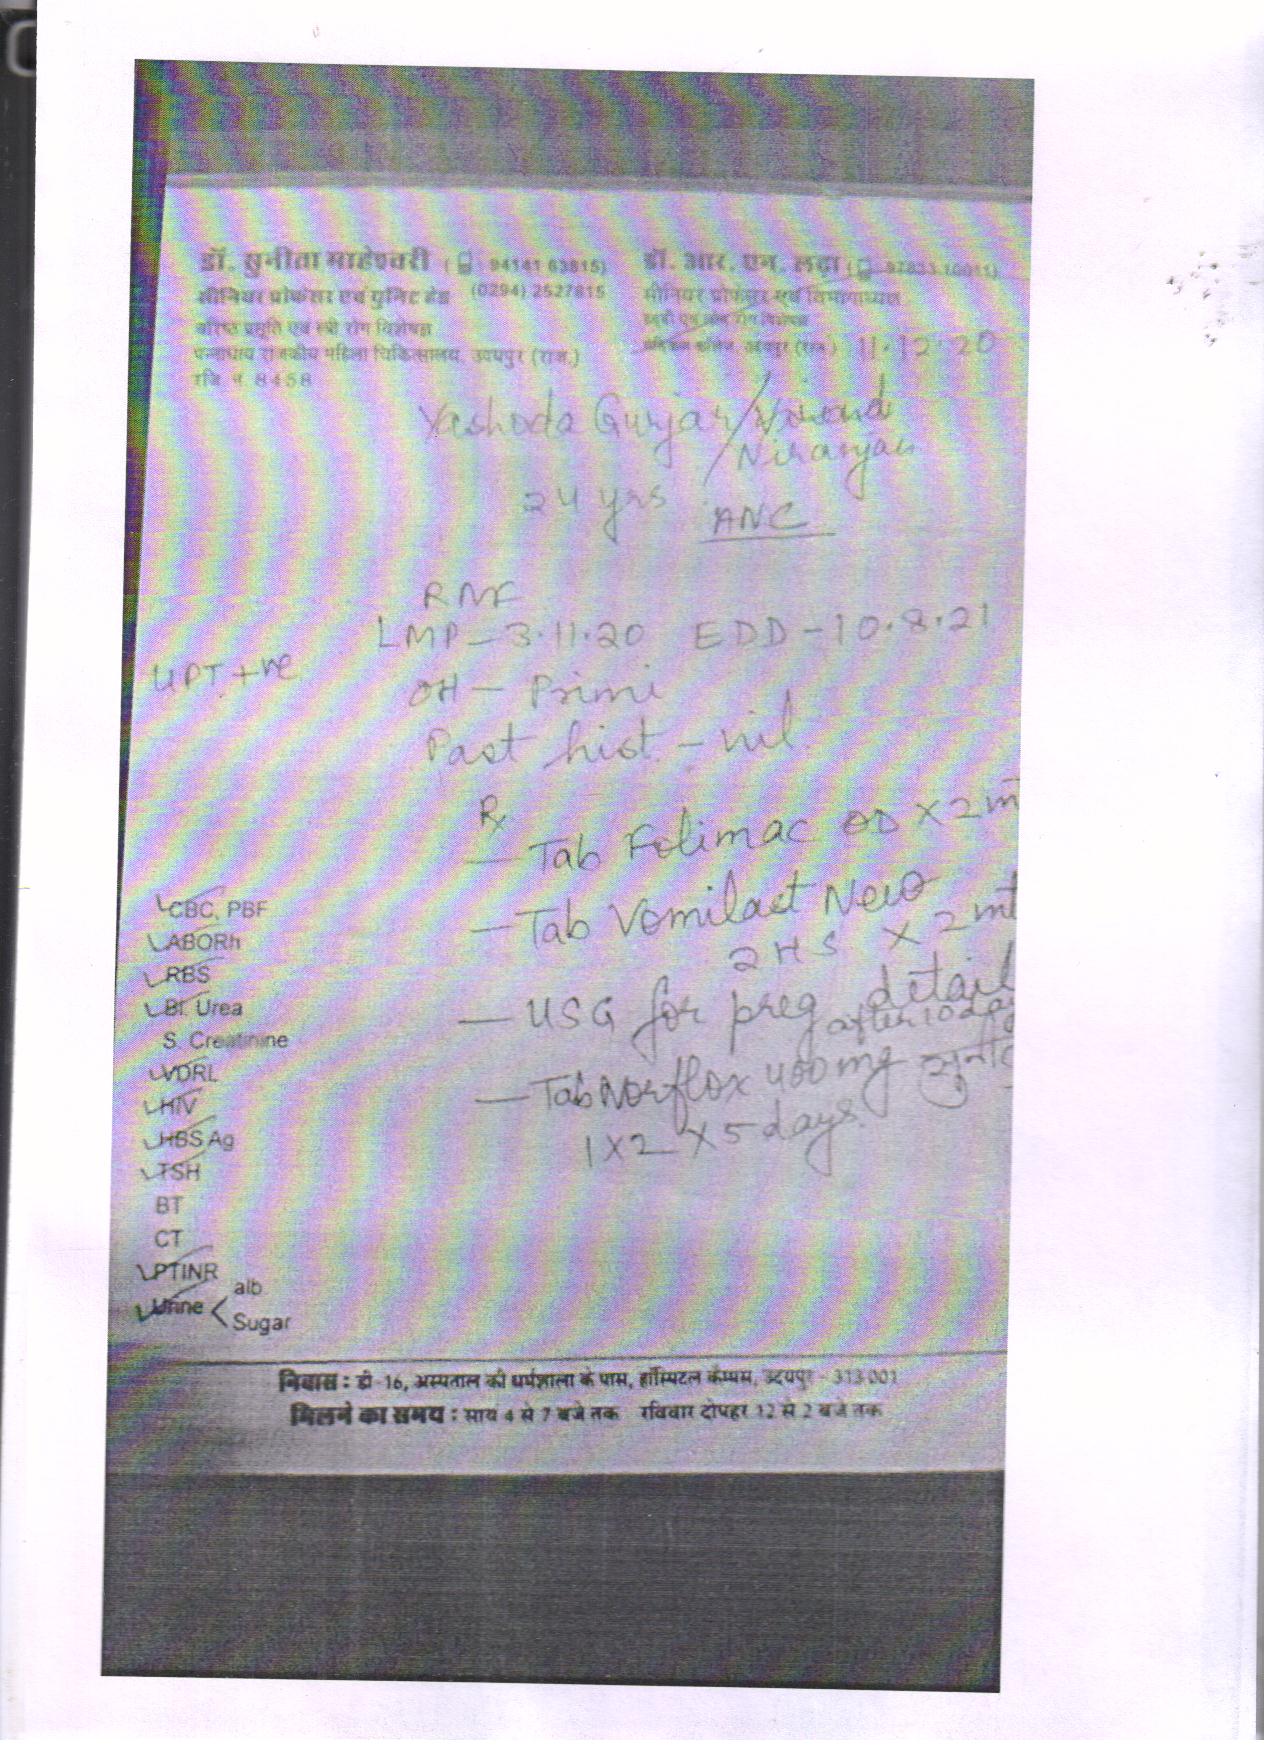 डॉ. सुनीता माहेश्वरी ( 94141 63815)
सीनियर प्रोफेसर एवं युनिट हेड (0294) 2527815
वरिष्ठ प्रसूति एवं स्त्री रोग विशेषज्ञ
पन्नाधाय राजकीय महिला चिकित्सालय, उदयपुर (राज.)
रजि नं 8458
डॉ. आर. एन. लढ़ा (
सीनियर प्रोफेसर एवं विभागाध्यक्ष
रोग विशेषज्ञ
उदयपुर (राज.) 11.12.20
Yashoda Gurjar/
Niranjan
24 yrs ANC
LMP - 3.11.20 EDD - 10.8.21
UPT +ve
OH - Primi
Past hist. - nil.
Rx
- Tab Folimac OD X 2 m
- Tab Vomilact New
2 HS X 2 mt
- USG for preg detail
after 10 day
- Tab Norflox 400 mg
1 X 2 X 5 days.
CBC, PBF
ABORh
RBS
Bl. Urea
S. Creatinine
VDRL
HIV
HBS Ag
TSH
BT
CT
PTINR
Urine < alb
Sugar
निवास : डी-16, अस्पताल की धर्मशाला के पास, हॉस्पिटल कैम्पस, उदयपुर - 313 001
मिलने का समय : साय 4 से 7 बजे तक रविवार दोपहर 12 से 2 बजे तक